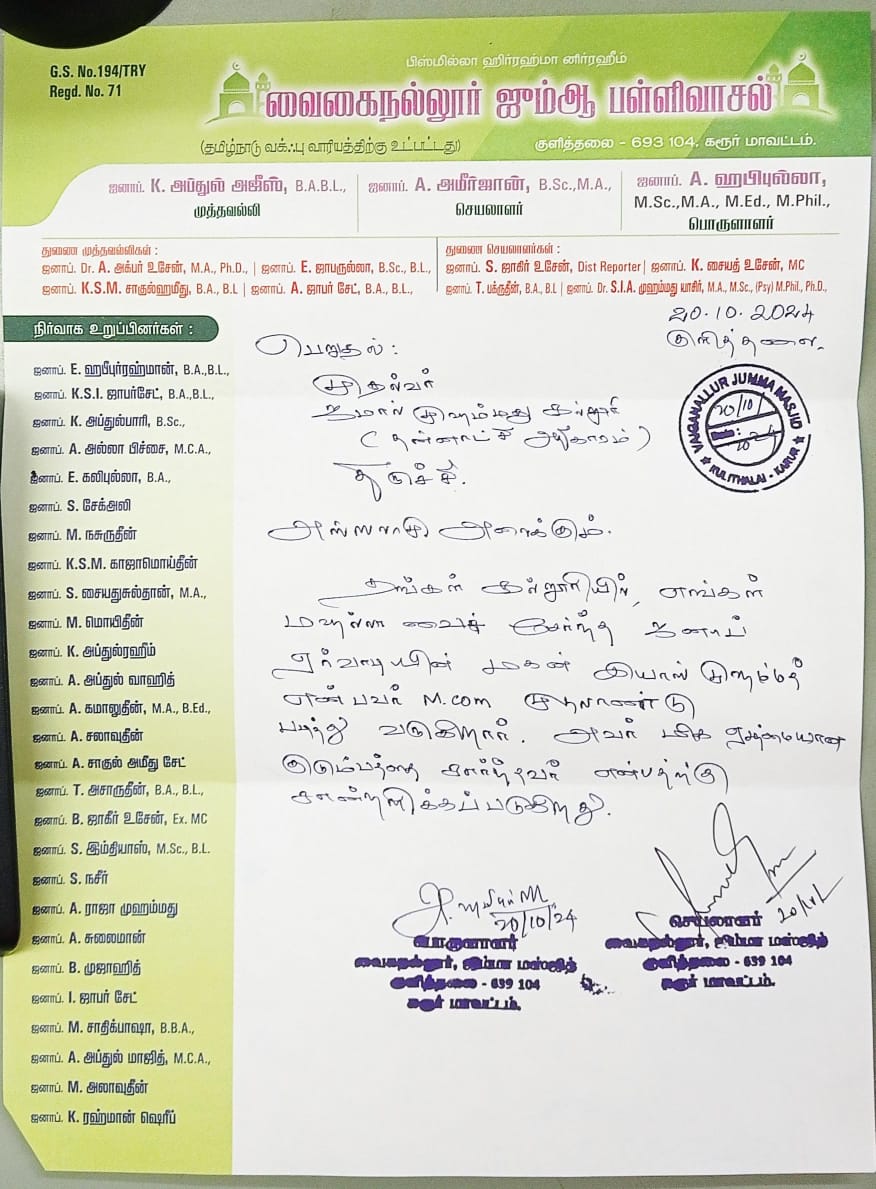 G.S. No.194/TRY
Regd. No. 71
பிஸ்மில்லா ஹிர்ரஹ்மா னிர்ரஹீம்
வைகைநல்லூர் ஜும்ஆ பள்ளிவாசல்
(தமிழ்நாடு வக்ஃபு வாரியத்திற்கு உட்பட்டது)
குளித்தலை - 693 104, கரூர் மாவட்டம்.
ஜனாப். K. அப்துல் அஜீஸ், B.A.B.L.,
முத்தவல்லி
ஜனாப். A. அமீர்ஜான், B.Sc.,M.A.,
செயலாளர்
ஜனாப். A. ஹபிபுல்லா,
M.Sc.,M.A., M.Ed., M.Phil.,
பொருளாளர்
துணை முத்தவல்லிகள் :
ஜனாப். Dr. A. அக்பர் உசேன், M.A., Ph.D., | ஜனாப். E. ஜாபருல்லா, B.Sc., B.L.,
ஜனாப். K.S.M. சாகுல்ஹமீது, B.A., B.L | ஜனாப். A. ஜாபர் சேட், B.A., B.L.,
துணை செயலாளர்கள் :
ஜனாப். S. ஜாகிர் உசேன், Dist Reporter | ஜனாப். K. சையத் உசேன், MC
ஜனாப். T. பக்ருதீன், B.A., B.L | ஜனாப். Dr. S.I.A. முஹம்மது யாசிர், M.A., M.Sc., (Psy) M.Phil., Ph.D.,
நிர்வாக உறுப்பினர்கள் :
ஜனாப். E. ஹபீபுர்ரஹ்மான், B.A.,B.L.,
ஜனாப். K.S.I. ஜாபர்சேட், B.A.,B.L.,
ஜனாப். K. அப்துல்பாரி, B.Sc.,
ஜனாப். A. அல்லா பிச்சை, M.C.A.,
ஜனாப். E. கலிபுல்லா, B.A.,
ஜனாப். S. சேக்அலி
ஜனாப். M. நசுருதீன்
ஜனாப். K.S.M. காஜாமொய்தீன்
ஜனாப். S. சையதுசுல்தான், M.A.,
ஜனாப். M. மொயிதீன்
ஜனாப். K. அப்துல்ரஹீம்
ஜனாப். A. அப்துல் வாஹித்
ஜனாப். A. கமாலுதீன், M.A., B.Ed.,
ஜனாப். A. சலாவுதீன்
ஜனாப். A. சாகுல் அமீது சேட்
ஜனாப். T. அசாருதீன், B.A., B.L.,
ஜனாப். B. ஜாகீர் உசேன், Ex. MC
ஜனாப். S. இம்தியாஸ், M.Sc., B.L.
ஜனாப். S. நசீர்
ஜனாப். A. ராஜா முஹம்மது
ஜனாப். A. சுலைமான்
ஜனாப். B. முஜாஹித்
ஜனாப். I. ஜாபர் சேட்
ஜனாப். M. சாதிக்பாஷா, B.B.A.,
ஜனாப். A. அப்துல் மாஜித், M.C.A.,
ஜனாப். M. அலாவுதீன்
ஜனாப். K. ரஹ்மான் ஷெரீப்
20.10.2024
குளித்தலை.
VAIGANALLUR JUMMA MASJID
20/10/
Date:
2024
KULITHALAI - KARUR
பெறுதல் :
முதல்வர்
ஜமால் முஹம்மது கல்லூரி
(தன்னாட்சி அதிகாரம்)
திருச்சி.
அஸ்ஸலாமு அலைக்கும்.
தங்கள் கல்லூரியில், எங்கள்
மஹல்லாவைச் சேர்ந்த ஜனாப்
ஏர்வாடியின் மகன் முஹம்மத்
என்பவர் M.com முதலாண்டு
படித்து வருகிறார். அவர் மிக ஏழ்மையான
குடும்பத்தை சார்ந்தவர் என்பதற்கு
சான்றளிக்கப்படுகிறது.
20/10/24
பொருளாளர்
வைகநல்லூர், ஜிம்மா மஸ்ஜித்
குளித்தலை - 639 104
கரூர் மாவட்டம்.
செயலாளர்
வைகநல்லூர், ஜிம்மா மஸ்ஜித்
குளித்தலை - 639 104
கரூர் மாவட்டம்.